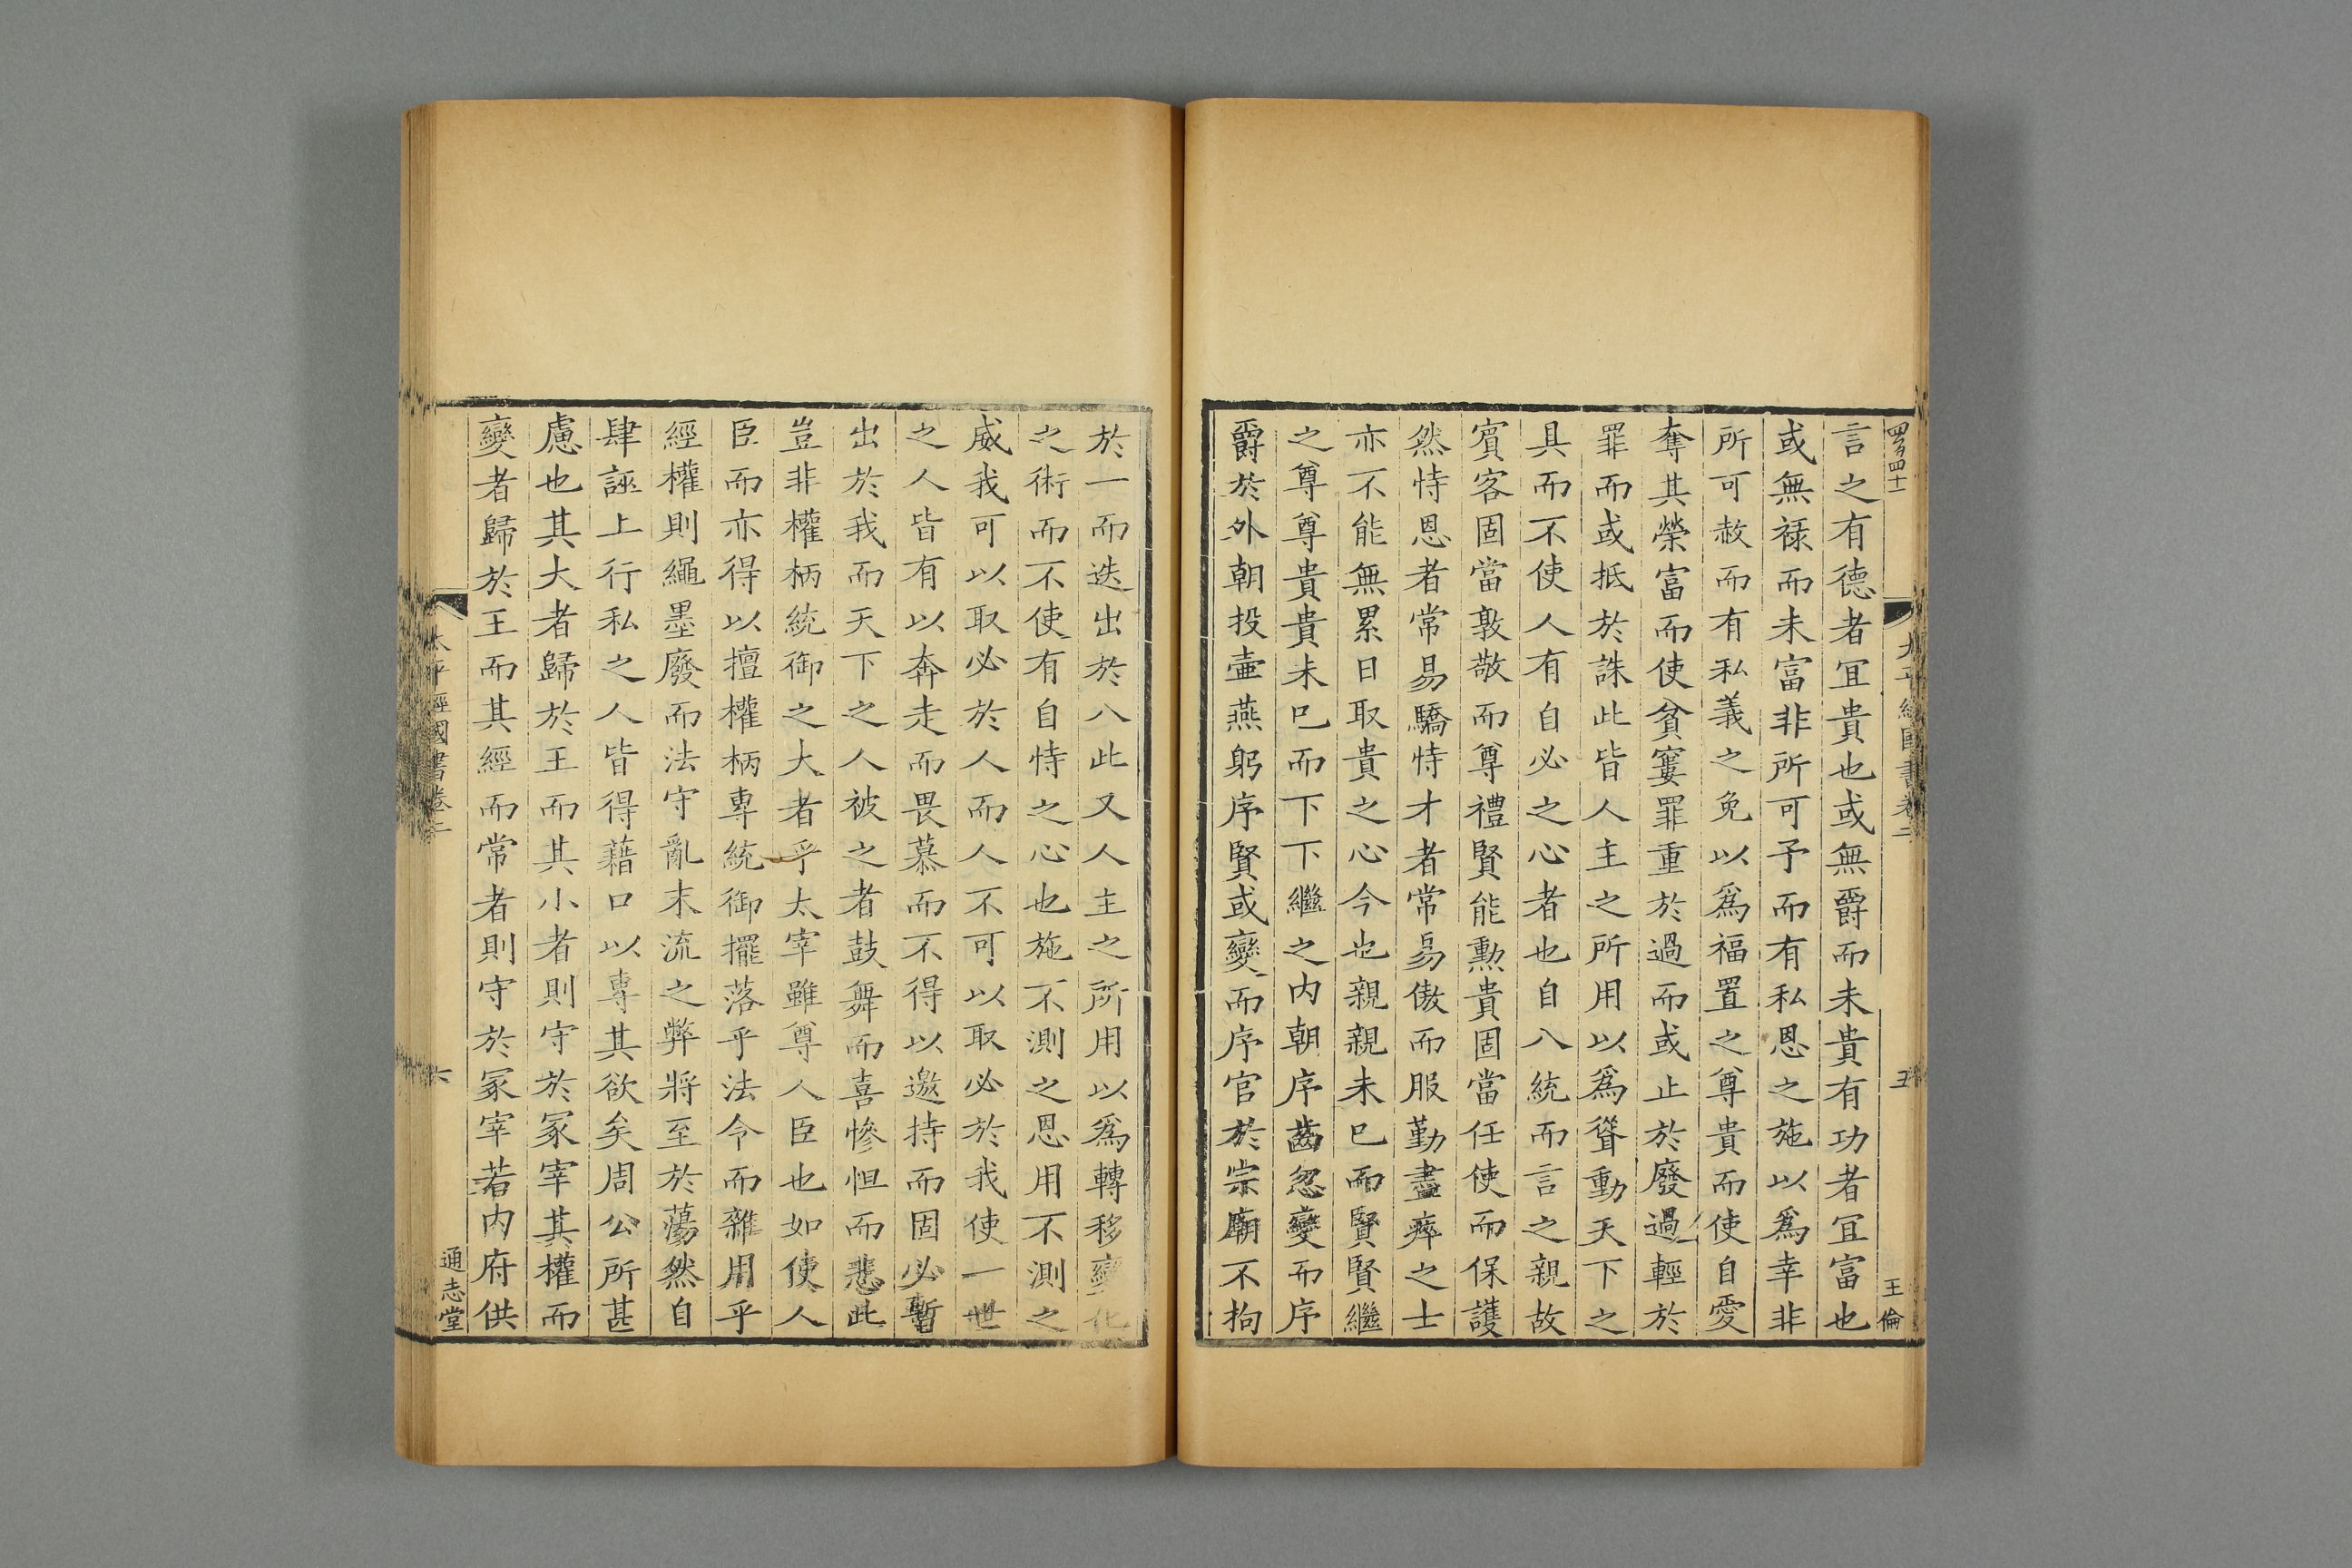 四百四十一
太平經國書卷二
五
王倫
言之有德者宜貴也或無爵而未貴有功者宜富也
或無祿而未富非所可予而有私恩之施以爲幸非
所可赦而有私義之免以爲福置之尊貴而使自愛
奪其榮富而使貧窶罪重於過而或止於廢過輕於
罪而或抵於誅此皆人主之所用以爲聳動天下之
具而不使人有自必之心者也自八統而言之親故
賓客固當敦敬而尊禮賢能勲貴固當任使而保護
然恃恩者常易驕恃才者常易傲而服勤盡瘁之士
亦不能無累日取貴之心今也親親未已而賢賢繼
之尊尊貴貴未已而下下繼之内朝序齒忽變而序
爵於外朝投壷燕躬序賢或變而序官於宗廟不拘
於一而迭出於八此又人主之所用以爲轉移變化
之術而不使有自恃之心也施不測之恩用不測之
威我可以取必於人而人不可以取必於我使一世
之人皆有以奔走而畏慕而不得以邀持而固必暫
出於我而天下之人被之者鼓舞而喜慘怛而悲此
豈非權柄統御之大者乎太宰雖尊人臣也如使人
臣而亦得以擅權柄專統御擺落乎法令而雜用乎
經權則繩墨廢而法守亂末流之弊將至於蕩然自
肆誣上行私之人皆得藉口以專其欲矣周公所甚
慮也其大者歸於王而其小者則守於冢宰其權而
變者歸於王而其經而常者則守於冢宰若内府供
太平經國書卷二
六
通志堂